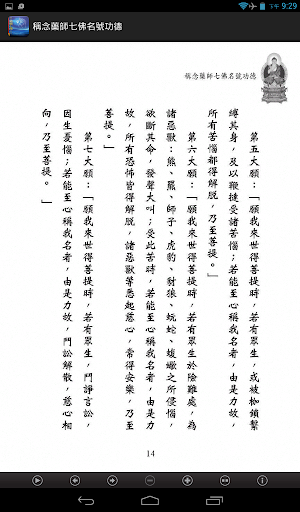 下午 9:29
稱念藥師七佛名號功德
稱念藥師七佛名號功德
第五大願：「願我來世得菩提時，若有眾生，或被枷鎖繫
縛其身，及以鞭撻受諸苦惱；若能至心稱我名者，由是力故，
所有苦惱都得解脫，乃至菩提。」
第六大願：「願我來世得菩提時，若有眾生於險難處，為
諸惡獸：熊、羆、師子、虎豹、豺狼、蚖蛇、蝮蠍之所侵惱，
欲斷其命，發聲大叫；受此苦時，若能至心稱我名者，由是力
故，所有恐怖皆得解脫，諸惡獸等悉起慈心，常得安樂，乃至
菩提。」
第七大願：「願我來世得菩提時，若有眾生，鬥諍言訟，
因生憂惱；若能至心稱我名者，由是力故，鬥訟解散，慈心相
向，乃至菩提。」
14